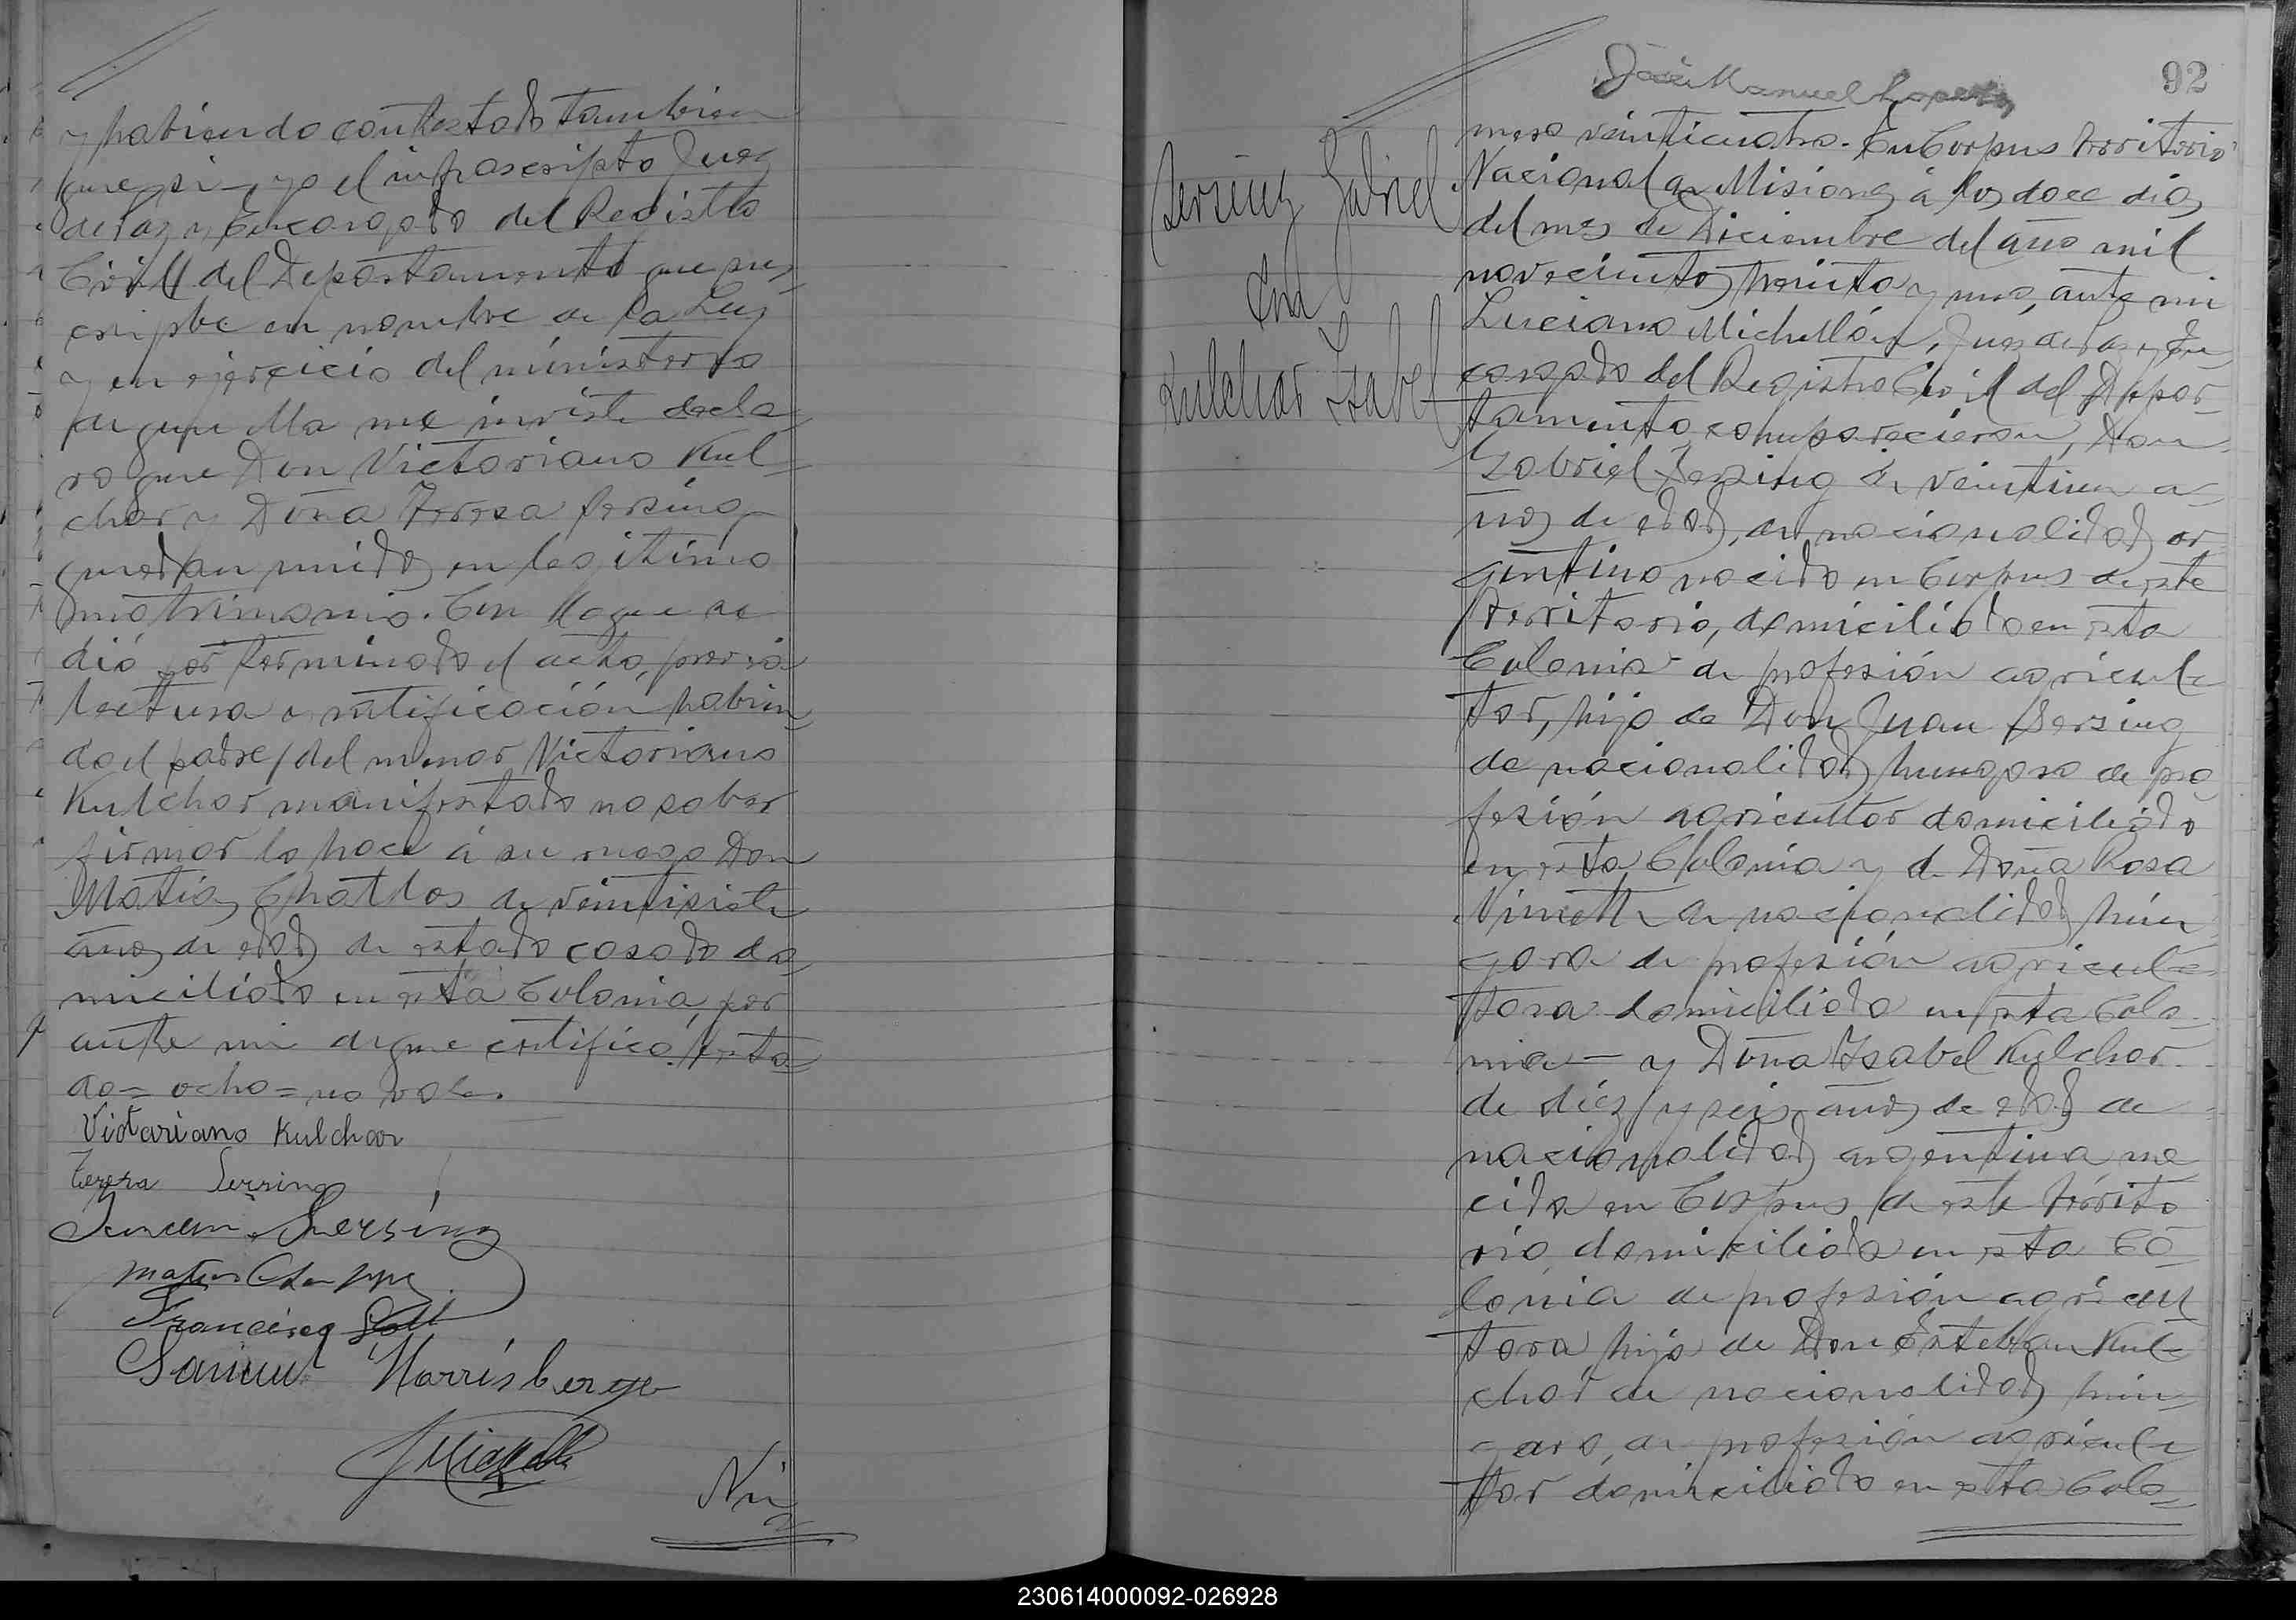 y habiendo contestado tambien
que si, yo el infrascripto Juez
de Paz y Encargado del Registro
Civil del Departamento que sus-
cripbe en nombre de la Ley
y en ejercicio del ministerio
de que ella me inviste decla-
ro que Don Victoriano Kul-
chor y Doña Teresa Sersing
quedan unidos en legitimo
matrimonio. Con lo que se
dió por terminado el acto, previa
lectura y ratificación habien-
do el padre del menor Victoriano
Kulchar manifestado no saber
firmar lo hace á su ruego Don
Matias de veintisiete
años de edad de estado casado do-
miciliado en esta Colonia, por
ante mi de que certifico. Testa-
do = ocho = no vale.
Victariano Kulchar
Teresa Sersing
Sersing
Francisco
Samuel Harrisberger
Nú
José Manuel
92
Sersing Gabriel
con
Kulchar Isabel
mero veinticuatro. En Corpus territorio
Nacional de Misiones á los doce dias
del mes de Diciembre del año mil
novecientos treinta y uno, ante mi
Luciano Michellón, Juez de Paz y En-
cargado del Registro Civil del Depar-
tamento, comparecieron, Don
Gabriel Sersing de veintiun a-
ños de edad, de nacionalidad ar-
gentino nacido en Corpus de este
territorio, domiciliado en esta
Colonia de profesión agricul-
tor, hijo de Don Juan Sersing
de nacionalidad hungaro de pro-
fesión agricultor domiciliado
en esta Colonia y de Doña Rosa
de nacionalidad hún-
gara de profesión agricul-
tora domiciliada en esta Colo-
nia — y Doña Isabel Kulchar
de diez y seis años de edad de
nacionalidad argentina na-
cida en Corpus de este territo-
rio, domiciliada en esta Co-
lonia de profesión agricul-
tora hija de Don Esteban Kul-
char de nacionalidad hún-
garo, de profesión agricul-
tor domiciliado en esta Colo-
230614000092-026928